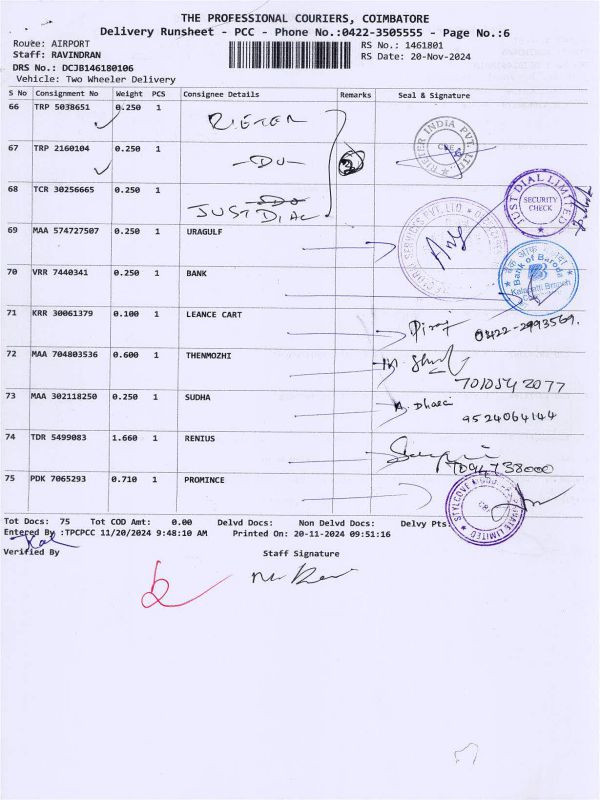 THE PROFESSIONAL COURIERS, COIMBATORE
Delivery Runsheet - PCC - Phone No.:0422-3505555 - Page No.:6
Route: AIRPORT RS No.: 1461801
Staff: RAVINDRAN RS Date: 20-Nov-2024
DRS No.: DCJB146180106
Vehicle: Two Wheeler Delivery
S No Consignment No Weight PCS Consignee Details Remarks Seal & Signature
66 TRP 5038651 0.250 1 RIETER
67 TRP 2160104 0.250 1 -DU-
68 TCR 30256665 0.250 1 JUST DIAL
JUST DIAL LIMITED
SECURITY CHECK
69 MAA 574727507 0.250 1 URAGULF
70 VRR 7440341 0.250 1 BANK
Bank of Baroda
71 KRR 30061379 0.100 1 LEANCE CART 0422-2993569.
72 MAA 704803536 0.600 1 THENMOZHI
7010542077
73 MAA 302118250 0.250 1 SUDHA
9524064144
74 TDR 5499083 1.660 1 RENIUS
75 PDK 7065293 0.710 1 PROMINCE
Tot Docs: 75 Tot COD Amt: 0.00 Delvd Docs: Non Delvd Docs: Delvy Pts:
Entered By :TPCPCC 11/20/2024 9:48:10 AM Printed On: 20-11-2024 09:51:16
Verified By Staff Signature